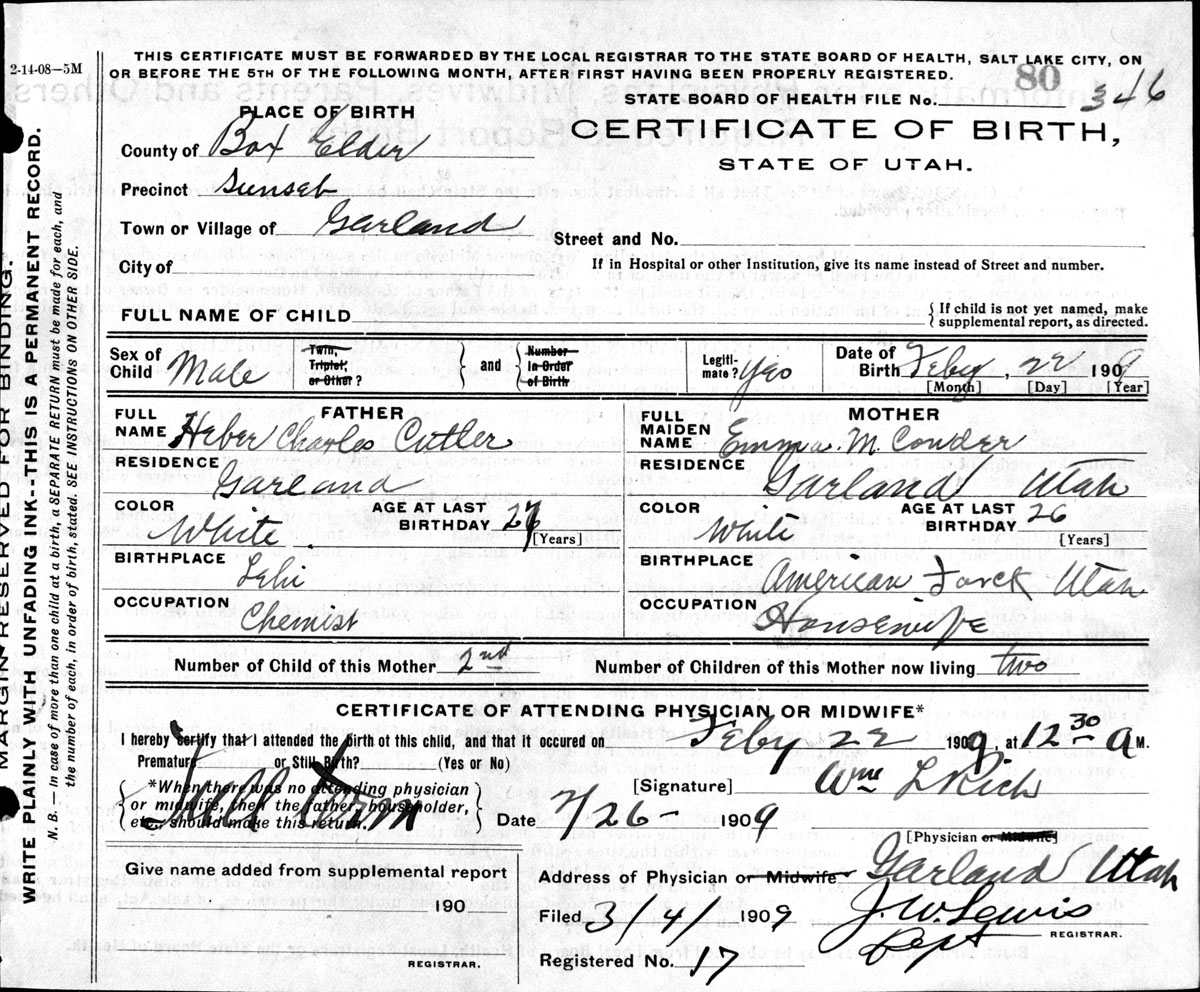 2-14-08—5M
THIS CERTIFICATE MUST BE FORWARDED BY THE LOCAL REGISTRAR TO THE STATE BOARD OF HEALTH, SALT LAKE CITY, ON
OR BEFORE THE 5TH OF THE FOLLOWING MONTH, AFTER FIRST HAVING BEEN PROPERLY REGISTERED.
80
STATE BOARD OF HEALTH FILE No. 346
CERTIFICATE OF BIRTH,
STATE OF UTAH.
PLACE OF BIRTH
County of Box Elder
Precinct Sunset
Town or Village of Garland
Street and No.
City of
If in Hospital or other Institution, give its name instead of Street and number.
FULL NAME OF CHILD
{ If child is not yet named, make
supplemental report, as directed.
Sex of Child Male
Twin, Triplet, or Other?
} and {
Number in Order of Birth
Legiti-mate? Yes
Date of Birth Feby 22 1909
[Month] [Day] [Year]
FATHER
FULL NAME Heber Charles Cutler
RESIDENCE Garland
COLOR White
AGE AT LAST BIRTHDAY
[Years]
BIRTHPLACE Lehi
OCCUPATION Chemist
MOTHER
FULL MAIDEN NAME Emma. M. Conder
RESIDENCE Garland Utah
COLOR White
AGE AT LAST BIRTHDAY 26
[Years]
BIRTHPLACE American Forck Utah
OCCUPATION Housewife
Number of Child of this Mother 2nd
Number of Children of this Mother now living two
CERTIFICATE OF ATTENDING PHYSICIAN OR MIDWIFE*
I hereby certify that I attended the birth of this child, and that it occurred on Feby 22 1909, at 12 30 a M.
Premature or Still Birth? (Yes or No)
{ *When there was no attending physician
or midwife, then the father, householder,
etc. should make this return. }
[Signature] Wm L Rich
Date 2/26 1909
[Physician or Midwife]
Give name added from supplemental report
190
REGISTRAR.
Address of Physician or Midwife Garland Utah
Filed 3/4/ 1909 J. W. Lewis
Dept REGISTRAR.
Registered No. 17
MARGIN RESERVED FOR BINDING.
WRITE PLAINLY WITH UNFADING INK—THIS IS A PERMANENT RECORD.
N. B.—In case of more than one child at a birth, a SEPARATE RETURN must be made for each, and
the number of each, in order of birth, stated. SEE INSTRUCTIONS ON OTHER SIDE.